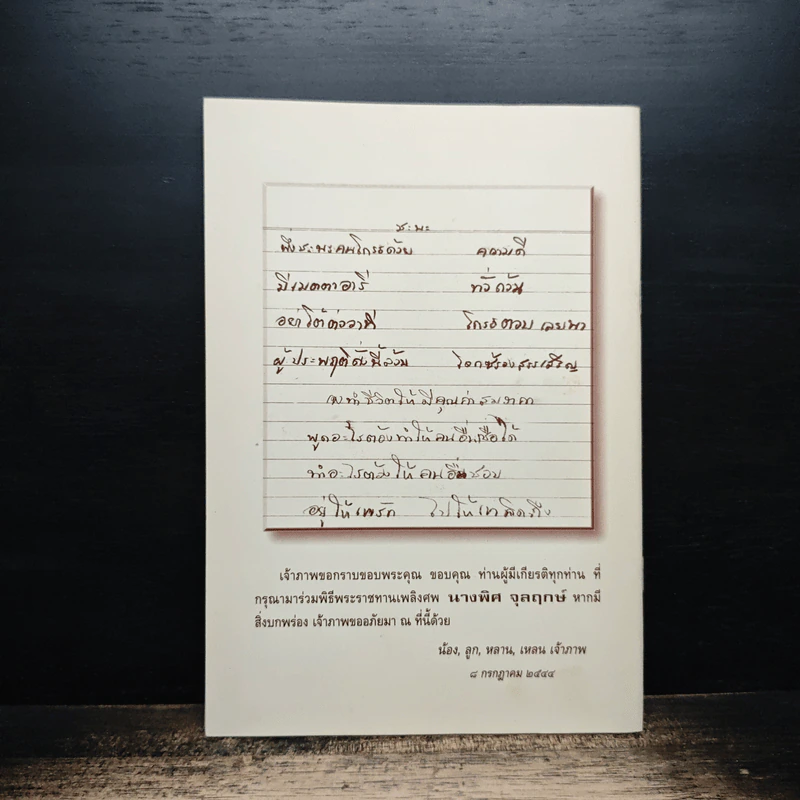 ชะนะ
พึงชะนะคนโกรธด้วย ความดี
มีเมตตาอารี ทั่วกัน
อย่าโต้ต่อวาที โกรธตอบ เลยนา
ผู้ประพฤติดั่งนี้ล้วน โลกซ้องสรรเสริญ
จงทำชีวิตให้มีคุณค่าสมราคา
พูดอะไรต้องทำให้คนอื่นเชื่อได้
ทำอะไรต้องให้คนอื่นชอบ
อยู่ให้เขารัก ไปให้เขาคิดถึง
เจ้าภาพขอกราบขอบพระคุณ ขอบคุณ ท่านผู้มีเกียรติทุกท่าน ที่
กรุณามาร่วมพิธีพระราชทานเพลิงศพ นางพิศ จุลฤกษ์ หากมี
สิ่งบกพร่อง เจ้าภาพขออภัยมา ณ ที่นี้ด้วย
น้อง, ลูก, หลาน, เหลน เจ้าภาพ
๘ กรกฎาคม ๒๕๔๔